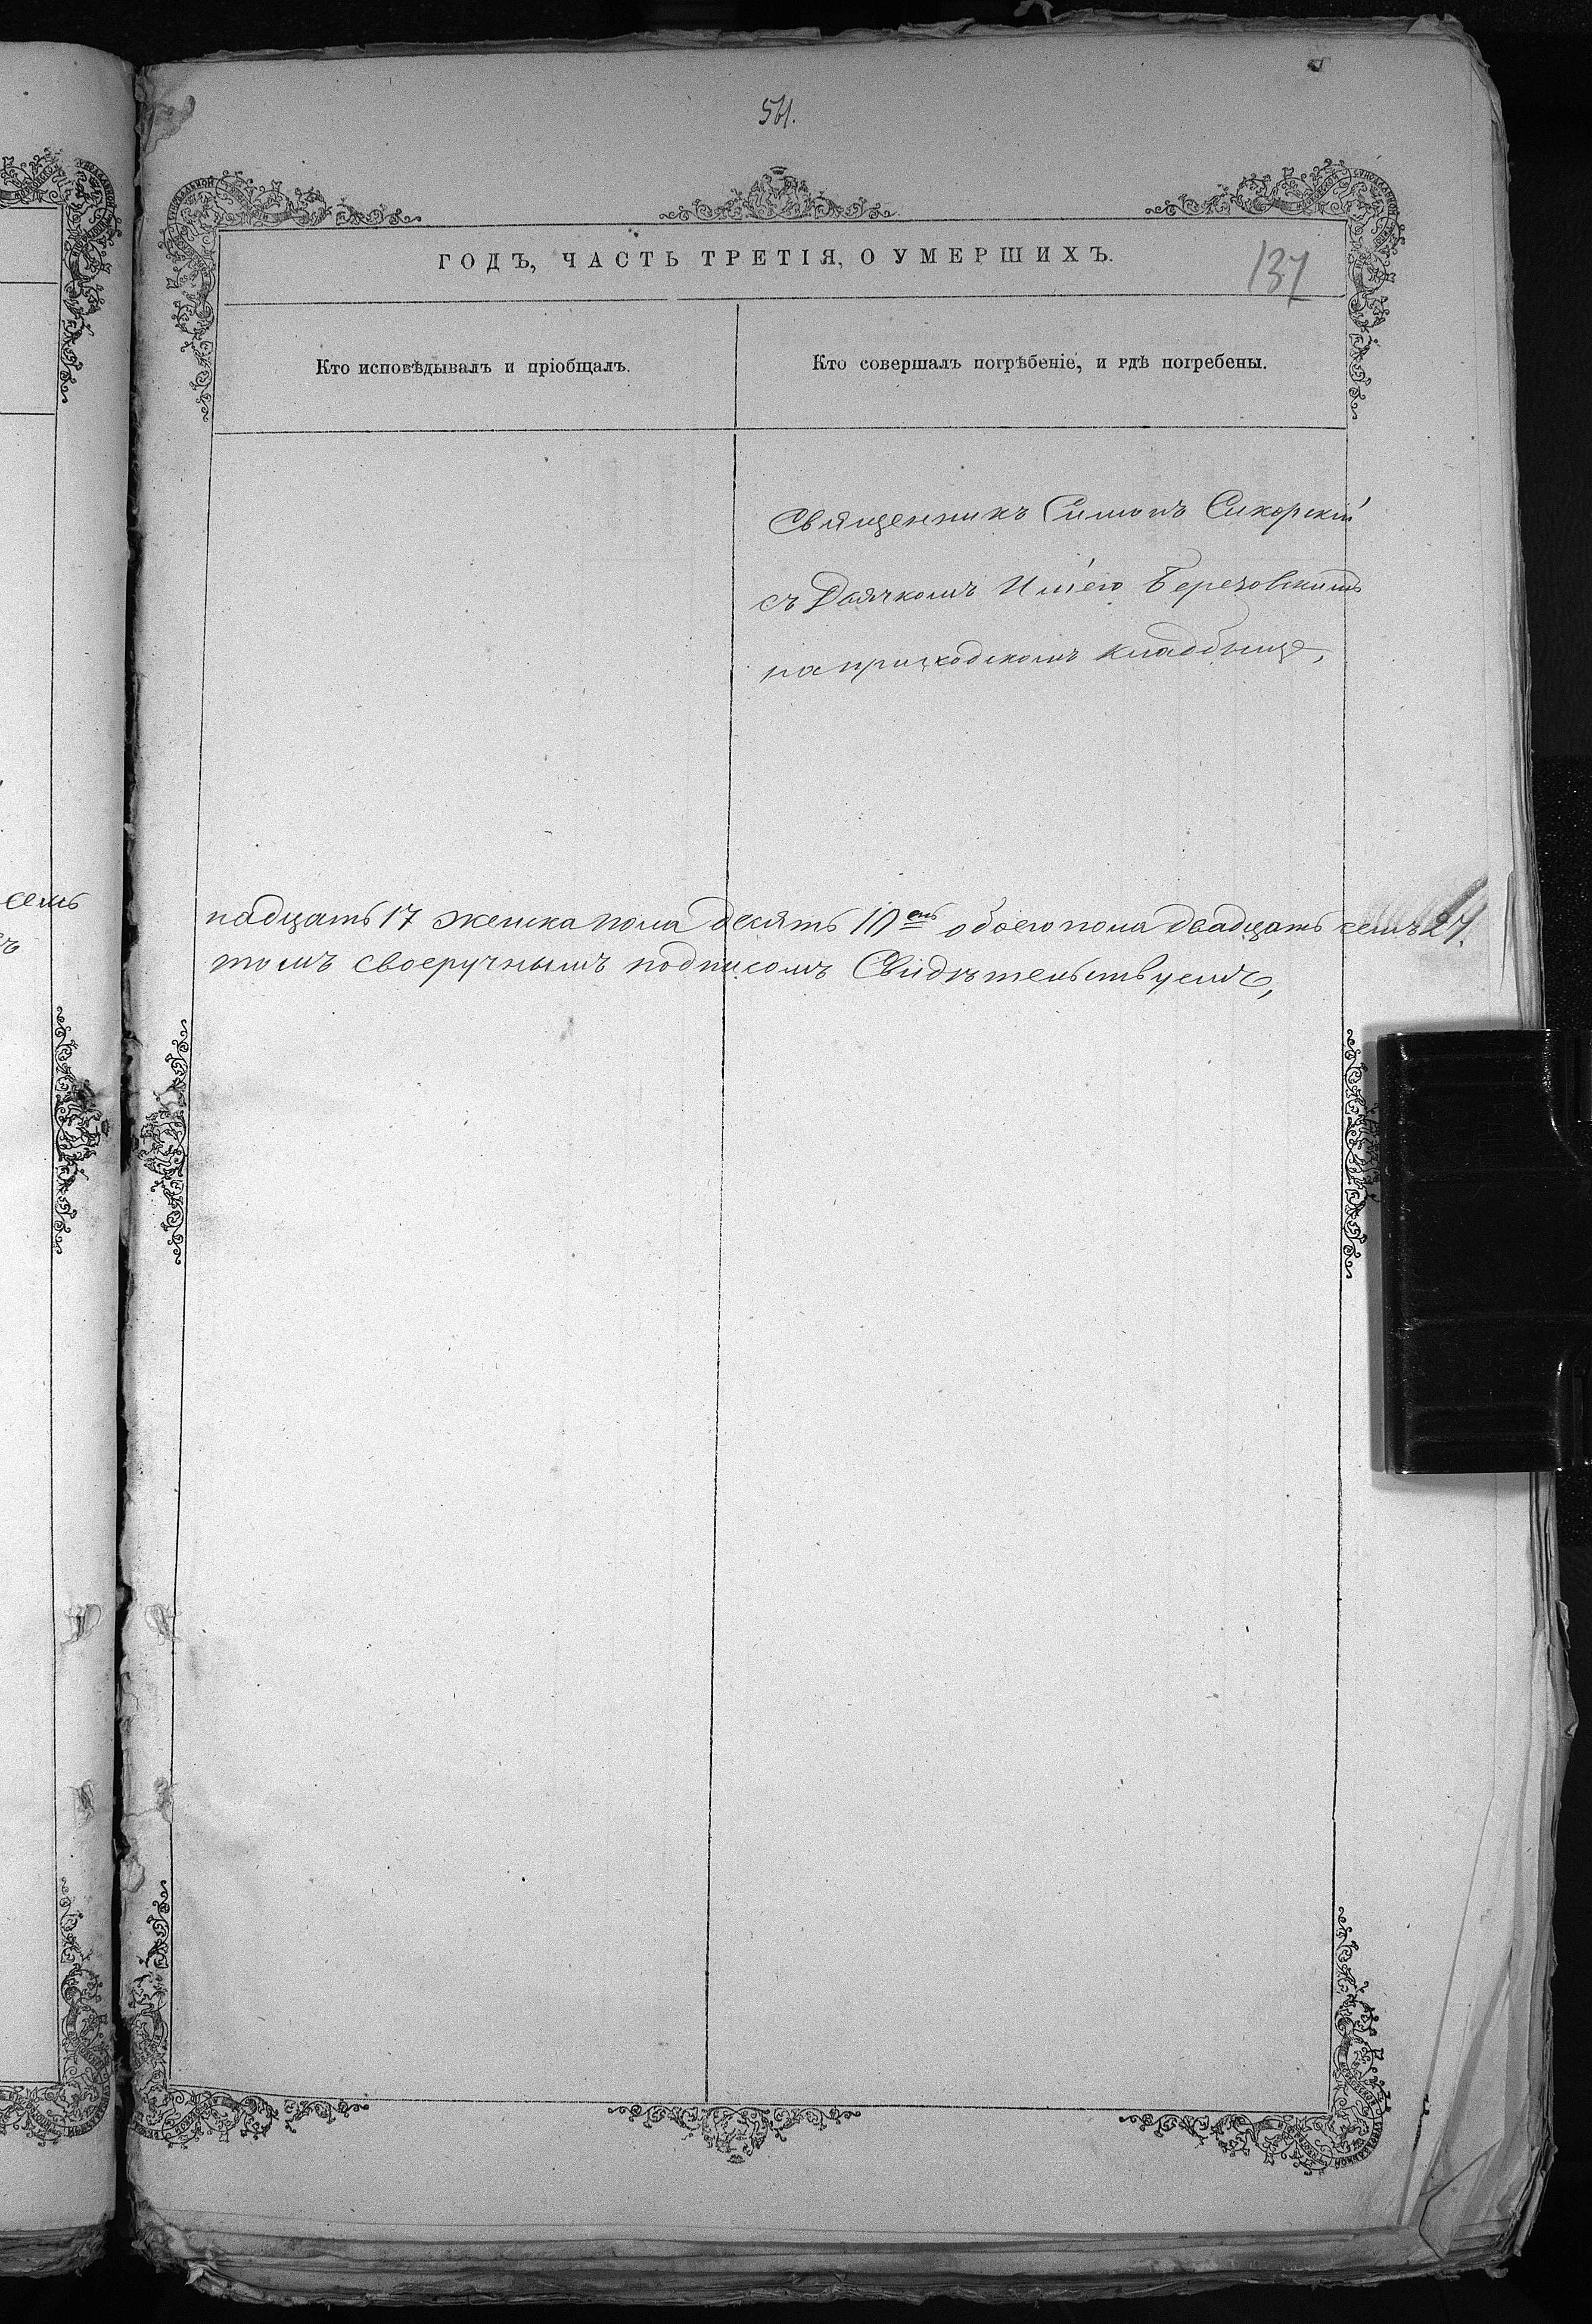 561.
ГОДЪ, ЧАСТЬ ТРЕТІЯ, О УМЕРШИХЪ.
137
Кто исповѣдывалъ и пріобщалъ.
Кто совершалъ погрѣбеніе, и гдѣ погребены.
Священникъ Симонъ Сикорскій
съ Дьячкомъ Иліею Березовскимъ
на приходскомъ кладбище,
семь
надцать 17 женска пола десять 10 обоего пола двадцать семь 27.
томъ своеручнымъ подписомъ Свидѣтельствуемъ,